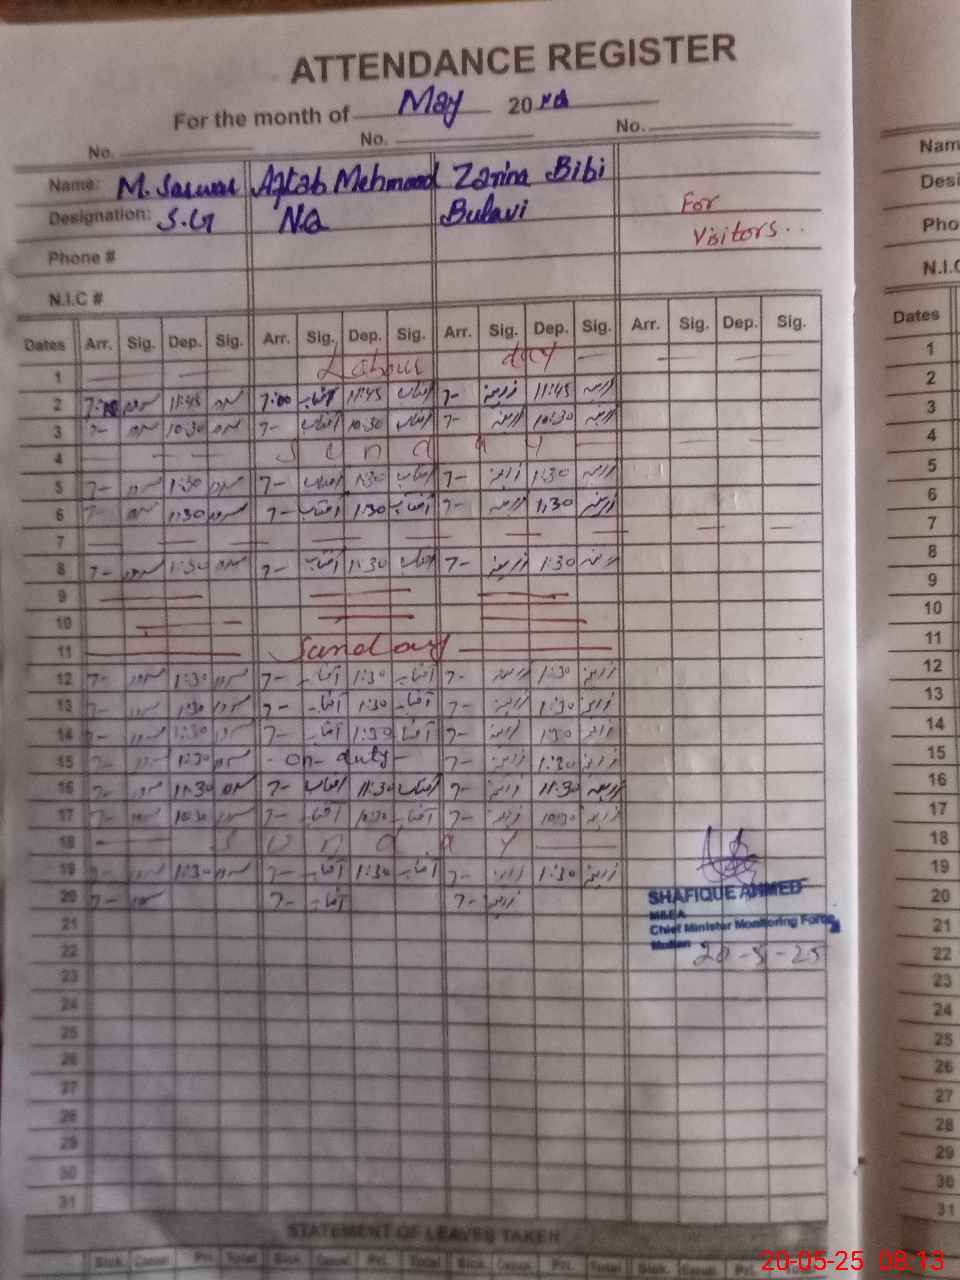 ATTENDANCE REGISTER
For the month of May 20
No. No. No.
Name: M. Sarwar Aftab Mehmood Zarina Bibi
Designation: S.G N.Q Bulavi For
Visitors..
Phone #
N.I.C #
Dates Arr. Sig. Dep. Sig. Arr. Sig. Dep. Sig. Arr. Sig. Dep. Sig. Arr. Sig. Dep. Sig.
1 Labour day
2 11:45 7:00 آفتاب 11:45 آفتاب 7- زرینہ 11:45 زرینہ
3 7- سرور 10:30 سرور 7- آفتاب 10:30 آفتاب 7- زرینہ 10:30 زرینہ
4 Sunday
5 7- سرور 1:30 سرور 7- آفتاب 1:30 آفتاب 7- زرینہ 1:30 زرینہ
6 7- سرور 1:30 سرور 7- آفتاب 1:30 آفتاب 7- زرینہ 1:30 زرینہ
7
8 7- سرور 1:30 سرور 7- آفتاب 1:30 آفتاب 7- زرینہ 1:30 زرینہ
9
10
11 Sunday
12 7- سرور 1:30 سرور 7- آفتاب 1:30 آفتاب 7- زرینہ 1:30 زرینہ
13 7- سرور 1:30 سرور 7- آفتاب 1:30 آفتاب 7- زرینہ 1:30 زرینہ
14 7- سرور 1:30 سرور 7- آفتاب 1:30 آفتاب 7- زرینہ 1:30 زرینہ
15 7- سرور 1:30 سرور - on - duty - 7- زرینہ 1:30 زرینہ
16 7- سرور 11:30 سرور 7- آفتاب 11:30 آفتاب 7- زرینہ 11:30 زرینہ
17 7- سرور 10:30 سرور 7- آفتاب 10:30 آفتاب 7- زرینہ 10:30 زرینہ
18 Sunday
19 7- سرور 1:30 سرور 7- آفتاب 1:30 آفتاب 7- زرینہ 1:30 زرینہ
20 7- سرور 7- آفتاب 7- زرینہ
SHAFIQUE AHMED
M&EA
Chief Minister Monitoring Force
Multan
20-5-25
21
22
23
24
25
26
27
28
29
30
31
STATEMENT OF LEAVES TAKEN
Sick. Casual. Pri. Total Sick. Casual. Pri. Total Sick. Casual. Pri. Total
Nam
Desi
Pho
N.I.C
Dates
1
2
3
4
5
6
7
8
9
10
11
12
13
14
15
16
17
18
19
20
21
22
23
24
25
26
27
28
29
30
31
20-05-25 08:13